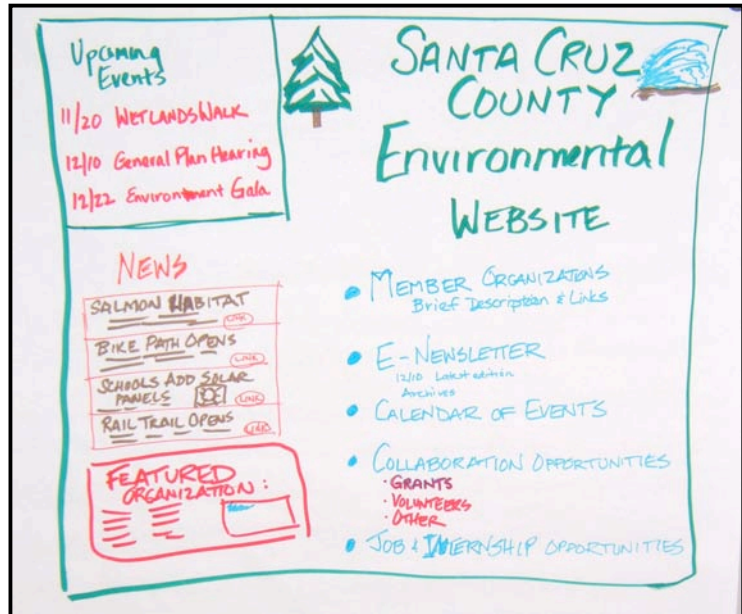 Upcoming
Events
11/20 WETLANDS WALK
12/10 General Plan Hearing
12/22 Environment Gala
SANTA CRUZ
COUNTY
Environmental
WEBSITE
NEWS
SALMON HABITAT
LINK
BIKE PATH OPENS
LINK
SCHOOLS ADD SOLAR
PANELS
LINK
RAIL TRAIL OPENS
LINK
FEATURED
ORGANIZATION:
• MEMBER ORGANIZATIONS
Brief Description & Links
• E-NEWSLETTER
12/10 Latest edition
Archives
• CALENDAR OF EVENTS
• COLLABORATION OPPORTUNITIES
· GRANTS
· VOLUNTEERS
· OTHER
• JOB & INTERNSHIP OPPORTUNITIES